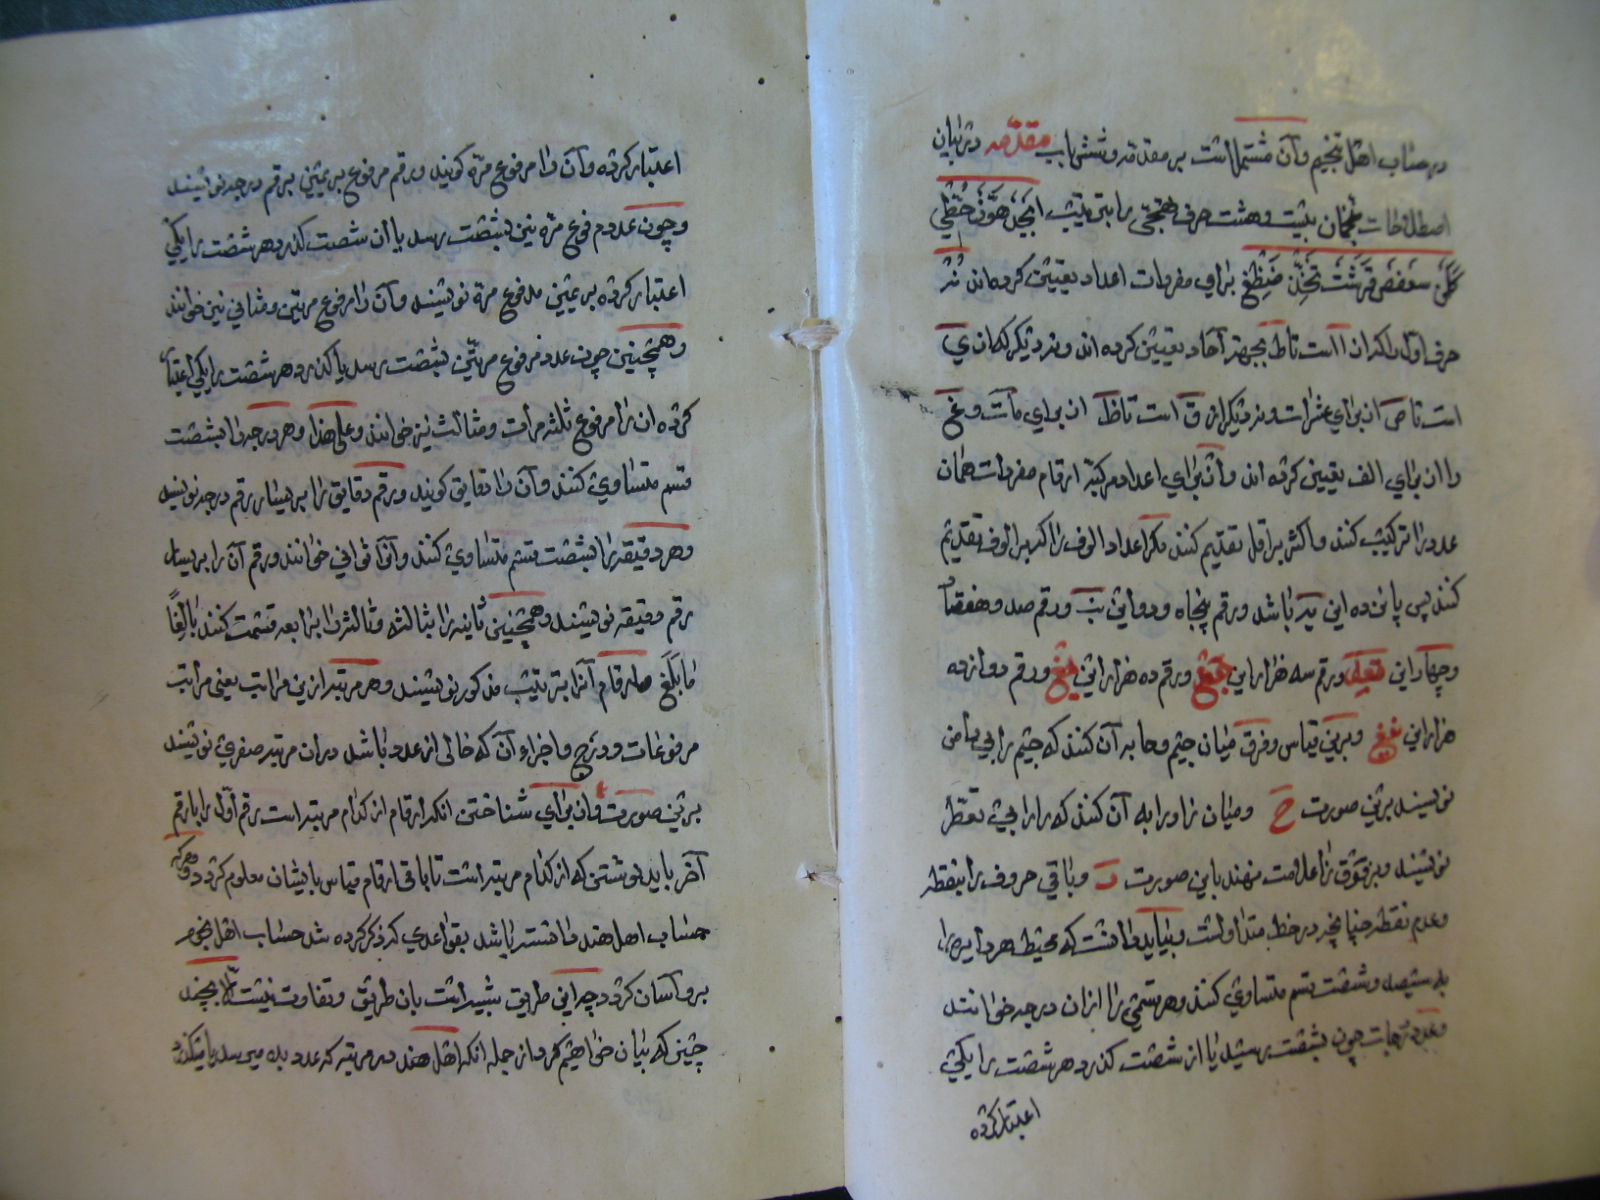 در حساب اهل تنجیم وآن مشتملست بر مقدمه وشش باب مقدمه در بیان
اصطلاحات منجمان بیست وهشت حرف تهجی را بترتیب ابجد هوز حطی
کلمن سعفص قرشت ثخذ ضظغ برای مفردات اعداد تعیین کرده اند نه
حرف اول را که از ا است تا ط بجهة آحاد تعیین کرده اند ونه دیگر که از ی
است تا ص از برای عشرات ونه دیگر از ق است تا ظ از برای مآت وغ
را از برای الف تعیین کرده اند واز برای اعداد مرکبه ارقام مفردات همان
عدد را ترکیب کنند واکثر بر اقل تقدیم کنند مکر اعداد الوف را که بر الوف تقدیم
کنند پس پانزده این یه باشد ورقم پنجاه ودو این نب ورقم صد وهفتاد
وچهار این قعد ورقم سه هزار این جغ ورقم ده هزار این یغ ورقم دوازده
هزار این یبغ وبرین قیاس وفرق میان جیم وحا به آن کنند که جیم را بی بیاض
نویسند برین صورت ح ومیان زا ورا به آن کنند که را را بی نقطه
نویسند وبر فوق زا علامت نهند باین صورت ر وباقی حروف را بنقطه
وعدم نقطه چنانچه در خط متداولست وبباید دانست که محیط هر دایره را
به سیصد وشصت قسم متساوی کنند وهر قسمی را از آن درجه خوانند
وعدد درجات چون بشصت برسد یا از شصت کذرد هر شصت را یکی
اعتبار کرده
اعتبار کرده وآن را مرفوع مرّة کویند ورقم مرفوع بر یمین برقم درجه نویسند
وچون عدد مرفوع مرّة نیز بشصت رسد یا از آن شصت کذرد هر شصت را یکی
اعتبار کرده بر یمین مرفوع مرّة نویسند وآن را مرفوع مرتین ومثانی نیز خوانند
وهمچنین چون عدد مرفوع مرتین بشصت رسد یا کذرد هر شصت را یکی اعتبار
کرده آن را مرفوع ثلث مرات ومثالث نیز خوانند وعلی هذا وهر درجه را بشصت
قسم متساوی کنند وآن را دقایق کویند ورقم دقایق را بر یسار رقم درجه نویسند
وهر دقیقه را بشصت قسم متساوی کنند وآنرا ثوانی خوانند ورقم آن را بر یسار
رقم دقیقه نویسند وهمچنین ثانیه را بثالثه وثالثه را برابعه قسمت کنند بالغا
ما بلغ وارقام آنرا بترتیب مذکور نویسند وهر مرتبه ازین مراتب یعنی مراتب
مرفوعات ودرج واجزاء آن که خالی از عدد باشد در آن مرتبه صفری نویسند
برین صورت ۶ واز برای شناختن آنکه ارقام از کدام مرتبه است رقم اول را یا رقم
آخر باید نوشتن که از کدام مرتبه است تا باقی ارقام قیاس بایشان معلوم کردد وهرکه
حساب اهل هند دانسته باشد بقواعدی که ذکر کرده شد حساب اهل نجوم
برو آسان کردد چه این طریق شبیه است بآن طریق وتفاوت نیست الا بچند
چیز که بیان خواهیم کرد از جمله آنکه اهل هند در هر مرتبه که عدد بده میرسد یا میکذرد